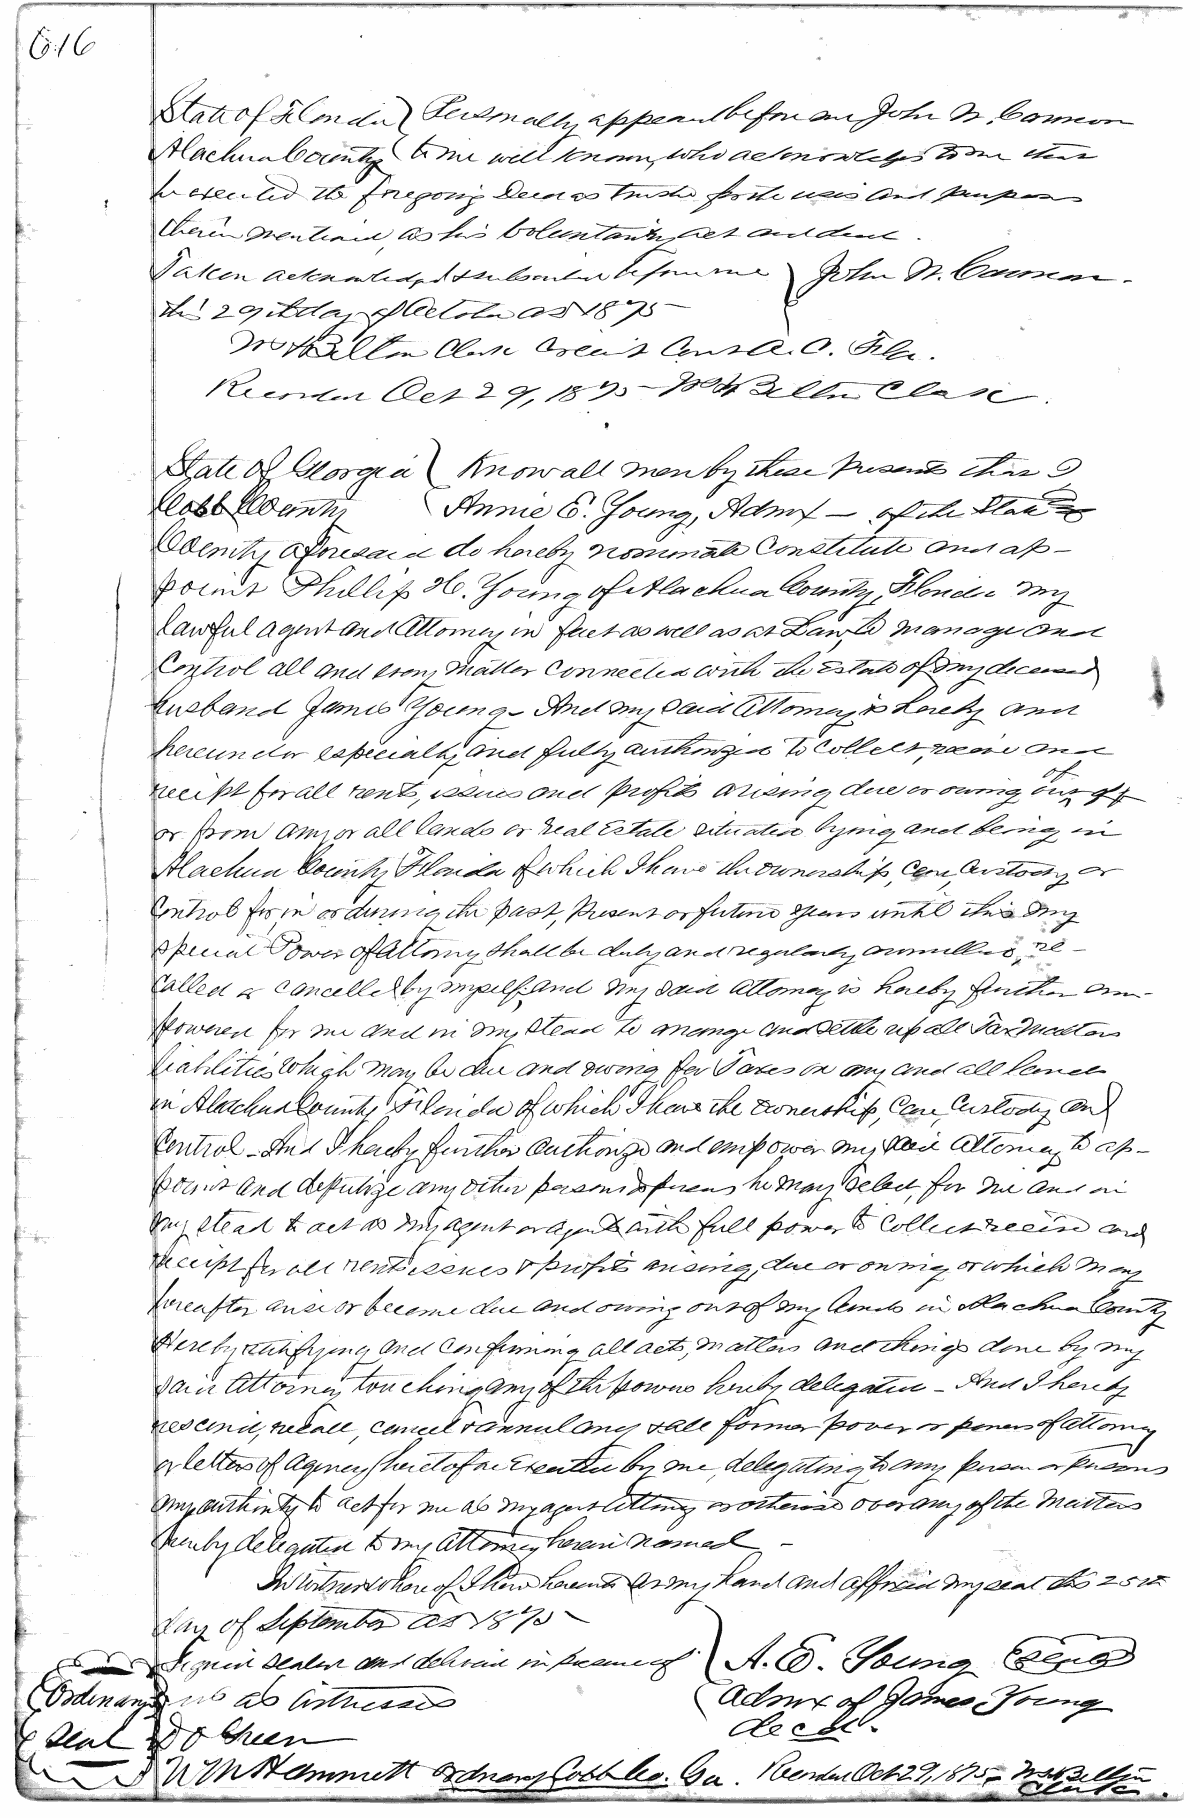 616
State of Florida } Personally appeared before me John W. Cannon
Alachua County } to me well known, who acknowledges to me that
he executed the foregoing Deed as trustee for the uses and purposes
therein mentioned, as his Voluntary act and deed.
Taken acknowledged & subscribed before me } John W. Cannon.
this 29th day of October AD 1875
Belton Clerk Circuit Court A. C. Fla.
Recorded Oct 29, 1875 Belton Clerk.
State of Georgia } Know all men by these Presents that I
Cobb County } Annie E. Young, Admx — of the State &
County aforesaid do hereby nominate Constitute and ap-
point Phillip H. Young of Alachua County, Florida my
lawful agent and Attorney in fact as well as at Law, to manage and
Control all and every matter connected with the Estate of my deceased
husband James Young – And my said Attorney is hereby and
hereunder especially and fully authorized to collect, receive and
receipt for all rents, issues and profits arising due or owing out of
or from any or all lands or real Estate situated lying and being in
Alachua County Florida of which I have the ownership, care, Custody or
Control for, in or during the past, present or future years until this my
special Power of Attorney shall be duly and regularly annulled, re-
called or cancelled by myself, and my said attorney is hereby further em-
powered for me and in my stead to arrange and settle up all Tax Matters
liabilities which may be due and owing for Taxes on any and all lands
in Alachua County Florida of which I have the ownership, care, Custody and
Control – And I hereby further authorize and empower my said attorney to ap-
point and deputize any other person or persons he may select, for me and in
my stead to act as my agent or agents with full power to Collect receive and
receipt for all rents issues & profits arising, due or owing or which may
hereafter arise or become due and owing out of my lands in Alachua County
Hereby ratifying and confirming all acts, matters and things done by my
said Attorney touching any of the powers hereby delegated – And I hereby
rescind, recall, cancel & annul any & all former power or powers of attorney
or letters of Agency heretofore Executed by me, delegating to any person or persons
any authority to act for me as my agent Attorney or otherwise over any of the Matters
hereby delegated to my Attorney herein named –
In Witness whereof I have hereunto set my hand and affixed my seal this 25th
day of September AD 1875
Signed sealed and delivered in presence of } A. E. Young (Seal)
us as witnesses } Admx of James Young
decd.
Ordinary
seal
Green
W M Hammett Ordinary Cobb Co. Ga. Recorded Oct 29, 1875 Belton
Clerk.